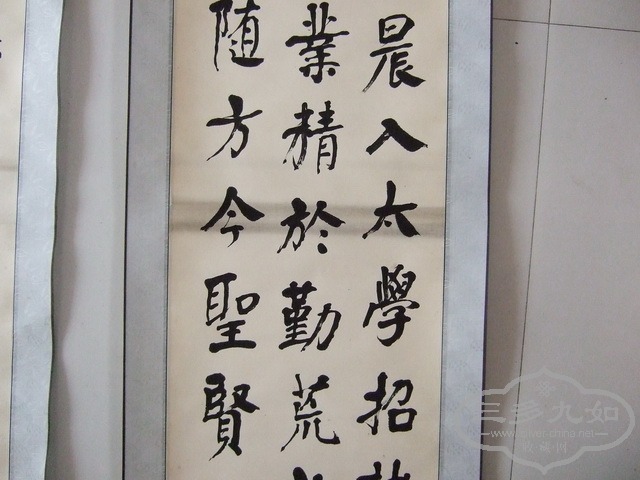 晨入太學招
業精於勤荒
随方今聖賢
三多九如